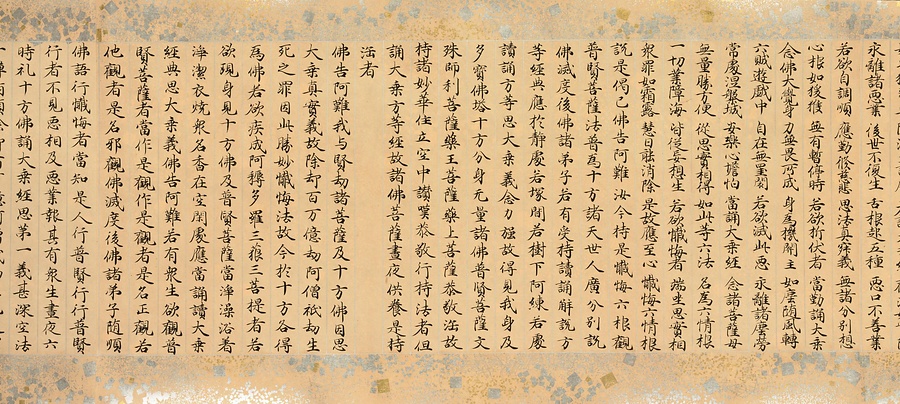 永離諸惡業 後世不復生 舌根起五種 惡口不善業
若欲自調順 應勤修慈悲 思法真寂義 無諸分別想
心根如猨猴 無有暫停時 若欲折伏者 當勤誦大乘
念佛大覺身 力無畏所成 身為機關主 如塵隨風轉
六賊遊戲中 自在無罣礙 若欲滅此惡 永離諸塵勞
常處涅槃城 安樂心憺怕 當誦大乘經 念諸菩薩母
無量勝方便 從思實相得 如此等六法 名為六情根
一切業障海 皆從妄想生 若欲懺悔者 端坐思實相
眾罪如霜露 慧日能消除 是故應至心 懺悔六情根
說是偈已佛告阿難汝今持是懺悔六根觀
普賢菩薩法普為十方諸天世人廣分別說
佛滅度後佛諸弟子若有受持讀誦解說方
等經典應於靜處若塚間若樹下阿練若處
讀誦方等思大乘義念力强故得見我身及
多寶佛塔十方分身无量諸佛普賢菩薩文
殊師利菩薩藥王菩薩藥上菩薩恭敬法故
持諸妙華住立空中讚歎恭敬行持法者但
誦大乘方等經故諸佛菩薩晝夜供養是持
法者
佛告阿難我與賢劫諸菩薩及十方佛因思
大乘真實義故除却百万億劫阿僧祇劫生
死之罪因此勝妙懺悔法故今於十方各得
為佛若欲疾成阿耨多羅三藐三菩提者若
欲現身見十方佛及普賢菩薩當淨澡浴著
淨潔衣燒眾名香在空閑處應當誦讀大乘
經典思大乘義佛告阿難若有眾生欲觀普
賢菩薩者當作是觀作是觀者是名正觀若
他觀者是名邪觀佛滅度後佛諸弟子隨順
佛語行懺悔者當知是人行普賢行行普賢
行者不見惡相及惡業報其有眾生晝夜六
時礼十方佛誦大乘經思第一義甚深空法